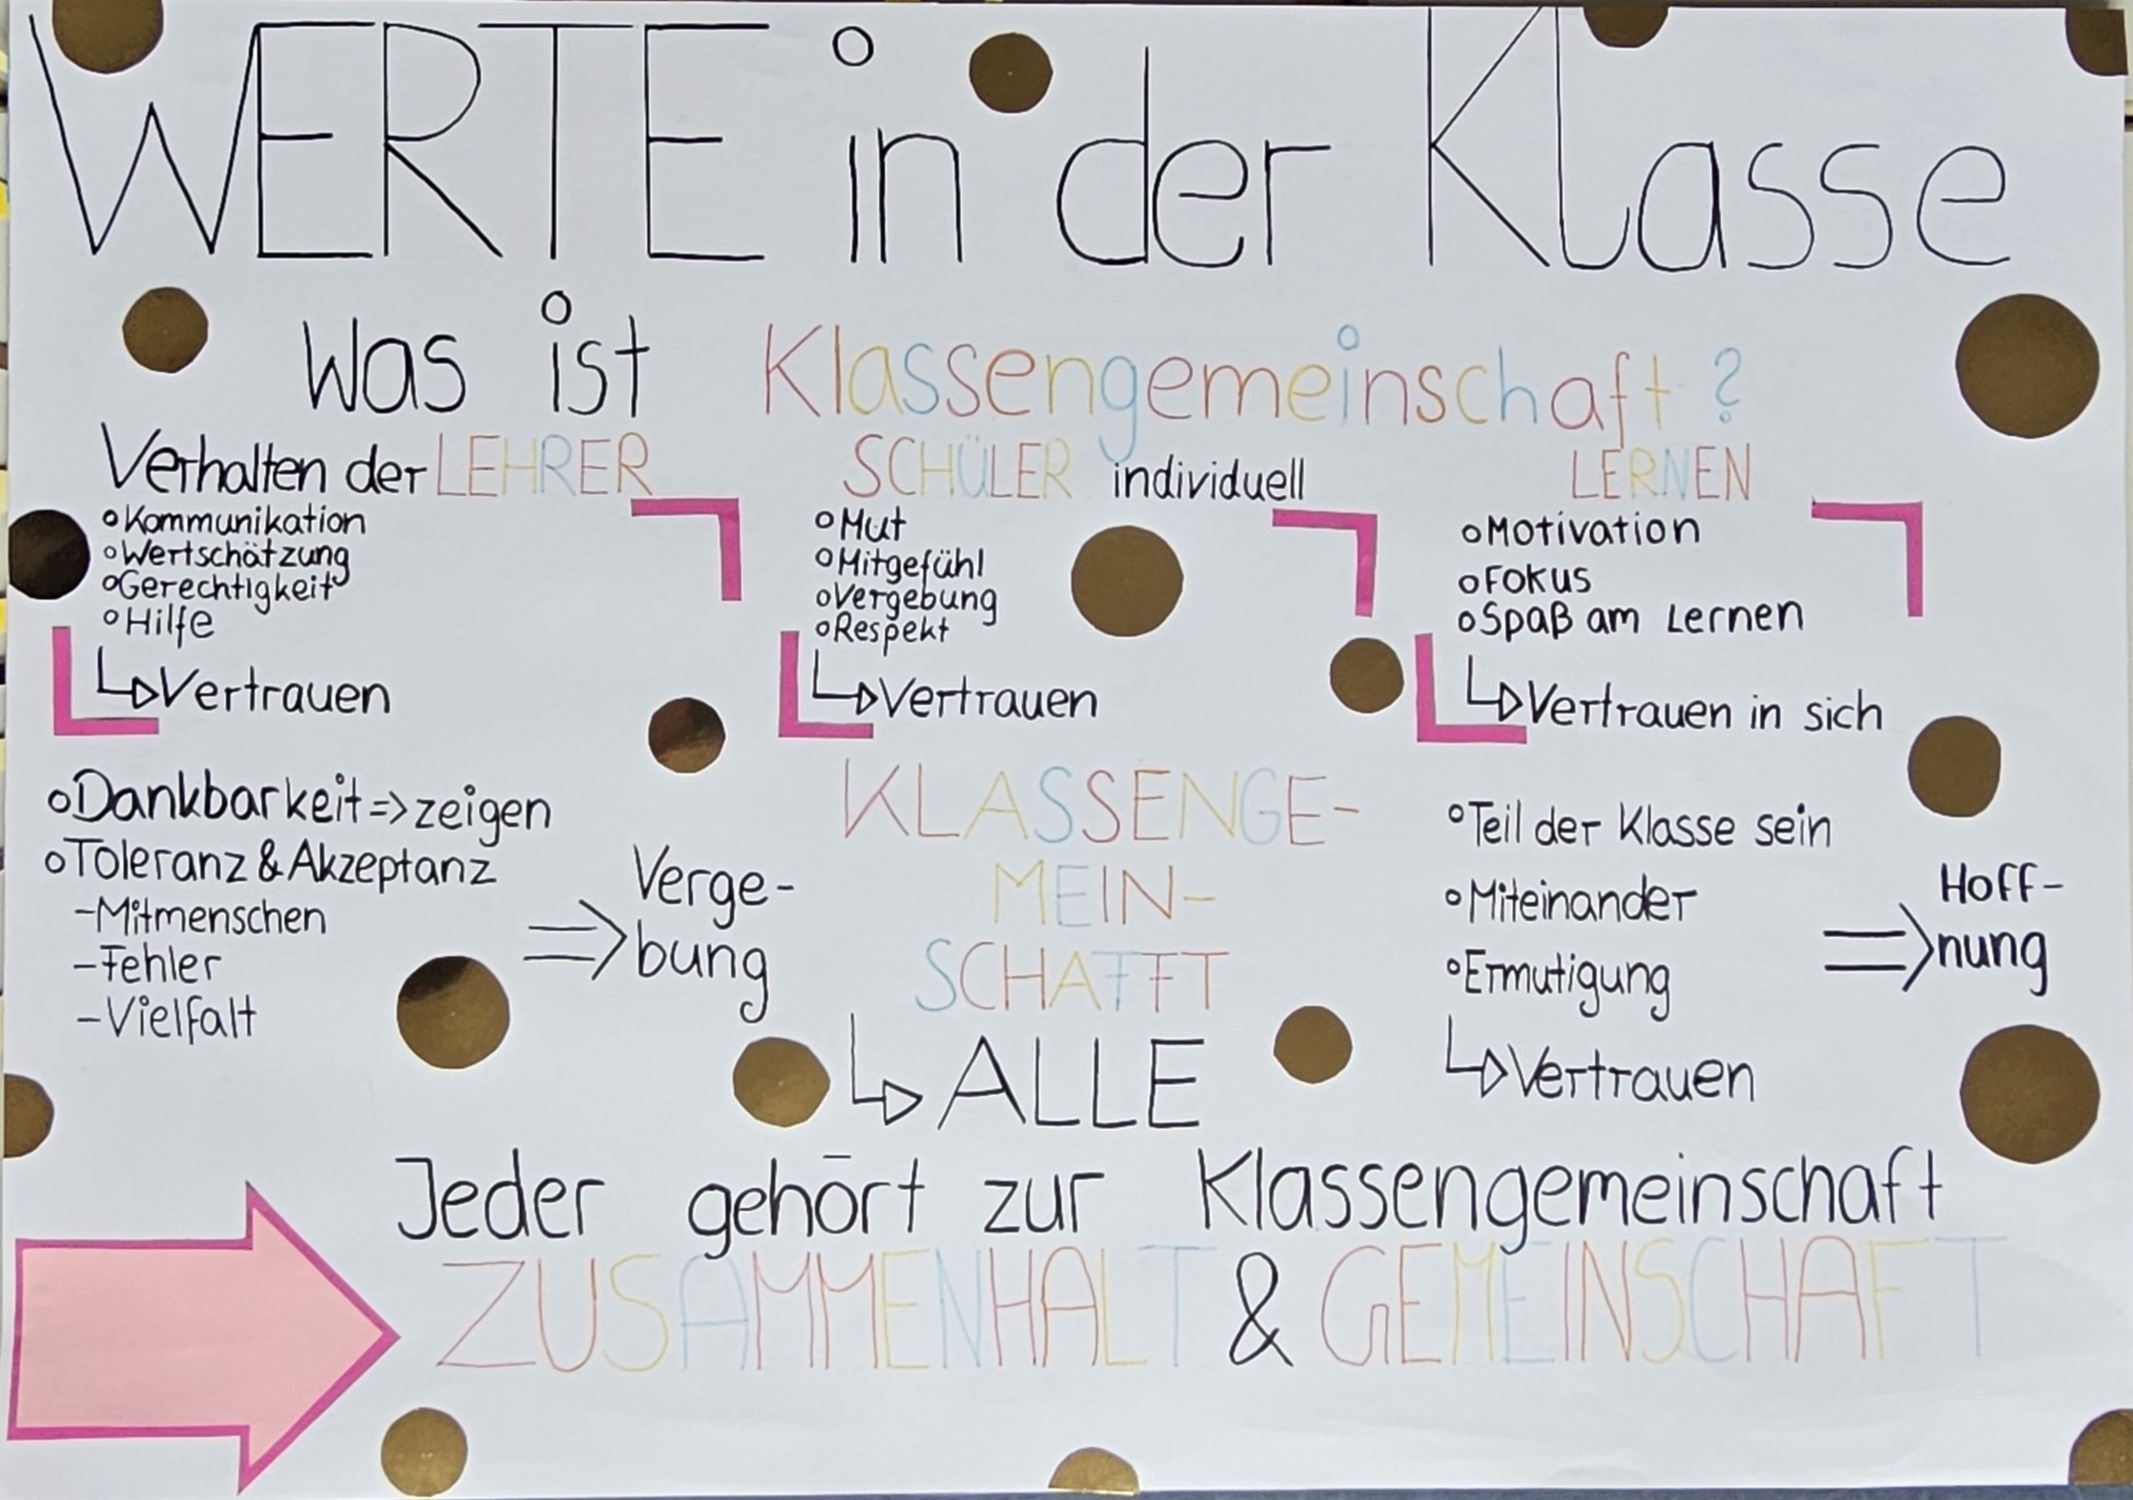 WERTE in der Klasse
Was ist Klassengemeinschaft?
Verhalten der LEHRER
oKommunikation
oWertschätzung
oGerechtigkeit
oHilfe
Vertrauen
SCHÜLER individuell
oMut
oMitgefühl
oVergebung
oRespekt
Vertrauen
LERNEN
oMotivation
oFokus
oSpaß am Lernen
Vertrauen in sich
oDankbarkeit => zeigen
oToleranz & Akzeptanz
-Mitmenschen
-Fehler
-Vielfalt
=> Verge-
bung
KLASSENGE-
MEIN-
SCHAFFT
ALLE
oTeil der Klasse sein
oMiteinander
oErmutigung
Vertrauen
=> Hoff-
nung
Jeder gehört zur Klassengemeinschaft
ZUSAMMENHALT & GEMEINSCHAFT